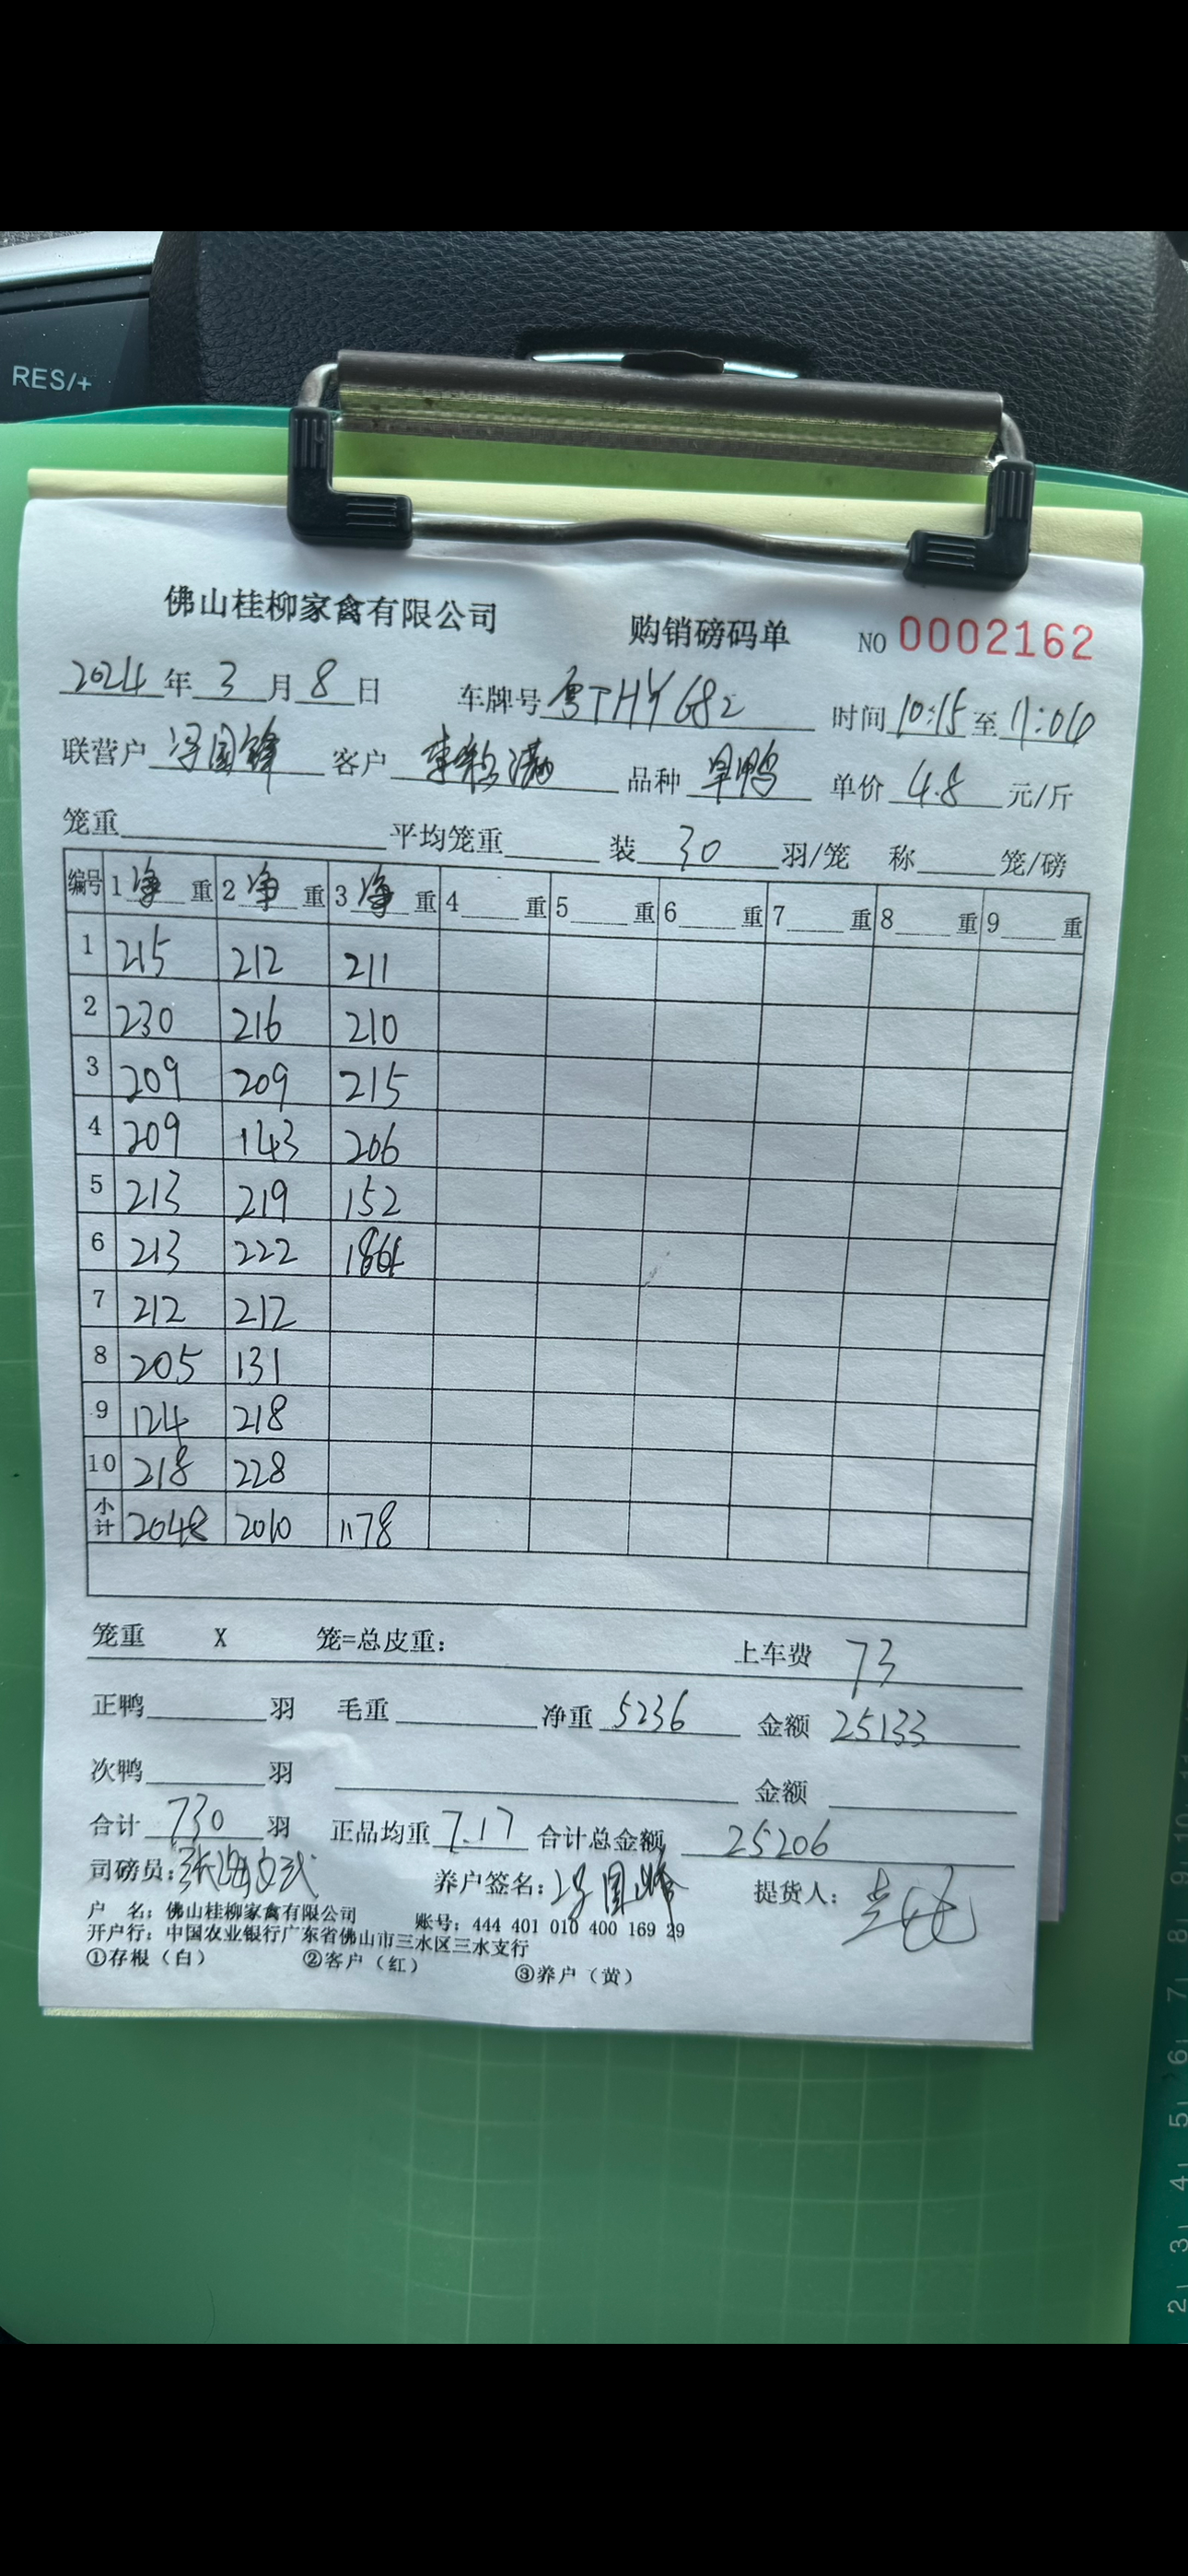 RES/+
佛山桂柳家禽有限公司 购销磅码单 NO 0002162
2024年3月8日 车牌号 粤THY682 时间 10:15 至 11:00
联营户 冯国锋 客户 品种 旱鸭 单价 4.8 元/斤
笼重 平均笼重 装 30 羽/笼 称 笼/磅
编号 1 净 重 2 净 重 3 净 重 4 重 5 重 6 重 7 重 8 重 9 重
1 215 212 211
2 230 216 210
3 209 209 215
4 209 143 206
5 213 219 152
6 213 222 184
7 212 212
8 205 131
9 124 218
10 218 228
小计 2048 2010 1178
笼重 X 笼=总皮重: 上车费 73
正鸭 羽 毛重 净重 5236 金额 25133
次鸭 羽 金额
合计 730 羽 正品均重 7.17 合计总金额 25206
司磅员: 养户签名: 冯国锋 提货人:
户 名: 佛山桂柳家禽有限公司 账号: 444 401 010 400 169 29
开户行: 中国农业银行广东省佛山市三水区三水支行
①存根（白） ②客户（红） ③养户（黄）
2 3 4 5 6 7 8 9 10 11